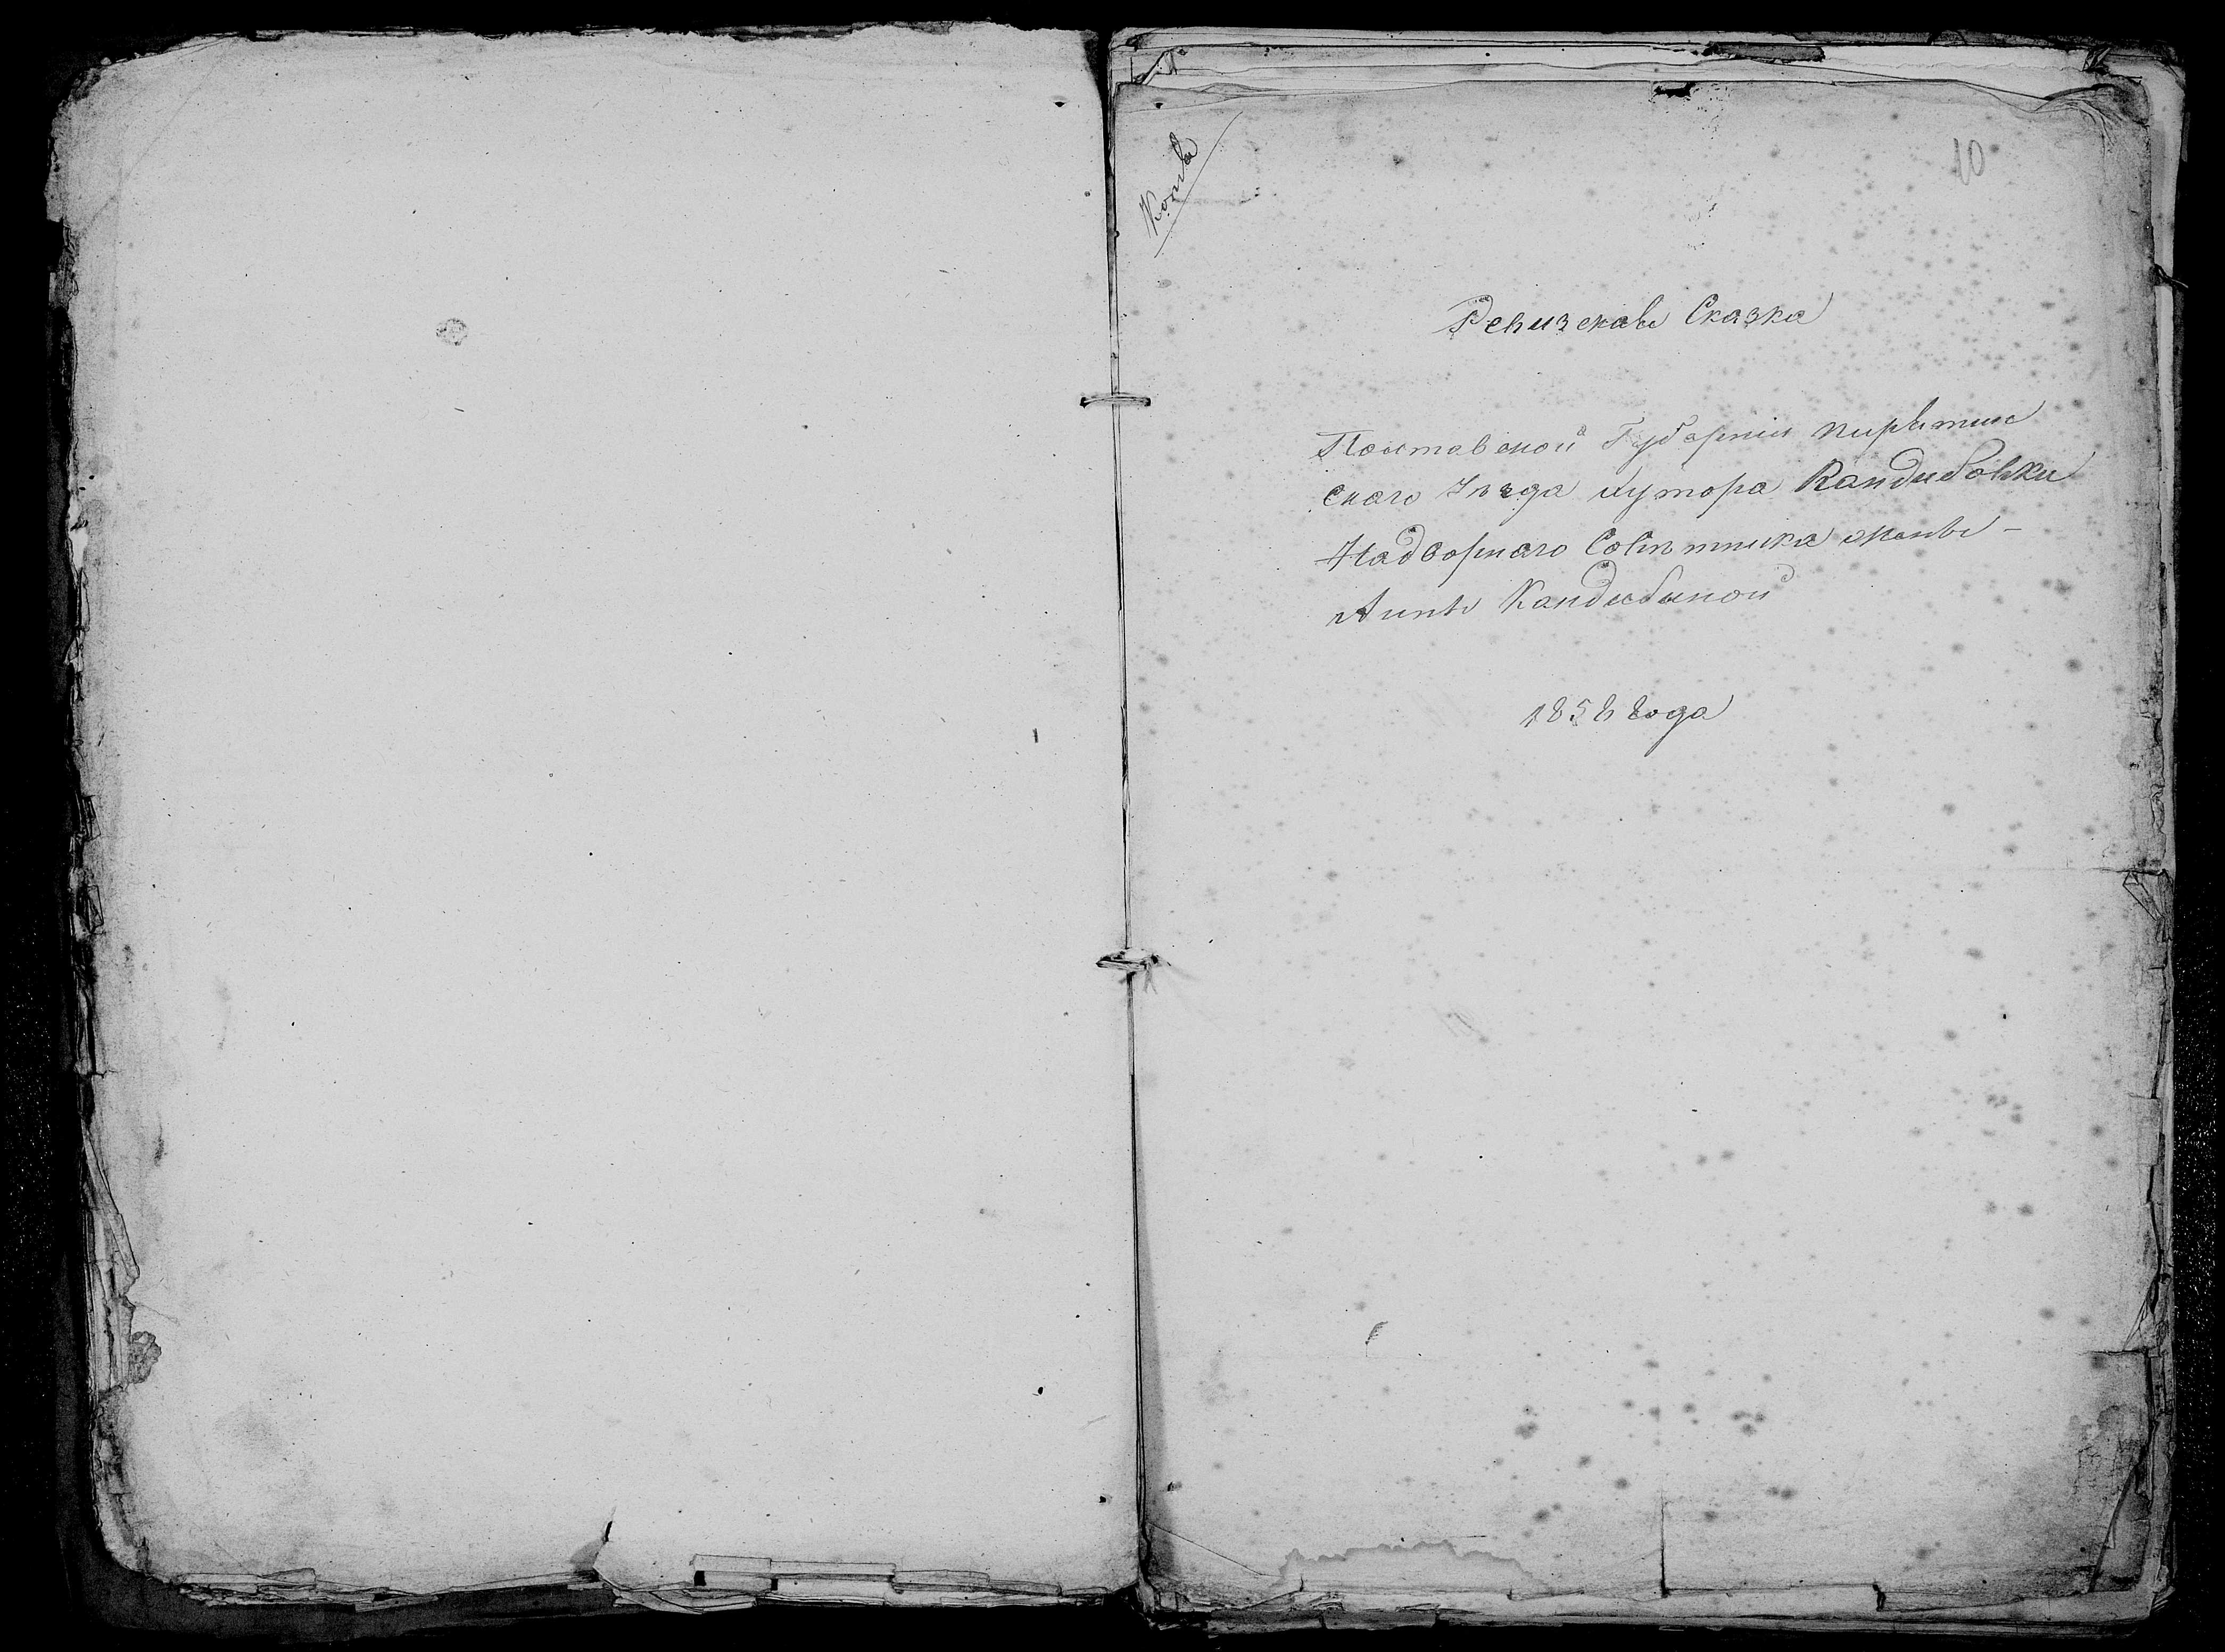 Копѣя
10
Ревизская Сказка
Полтавской Губерніи пирятин
скаго Уѣзда хутора Кандибовки
Надворнаго Совѣтника жены –
Анны Кандибиной
1858 года